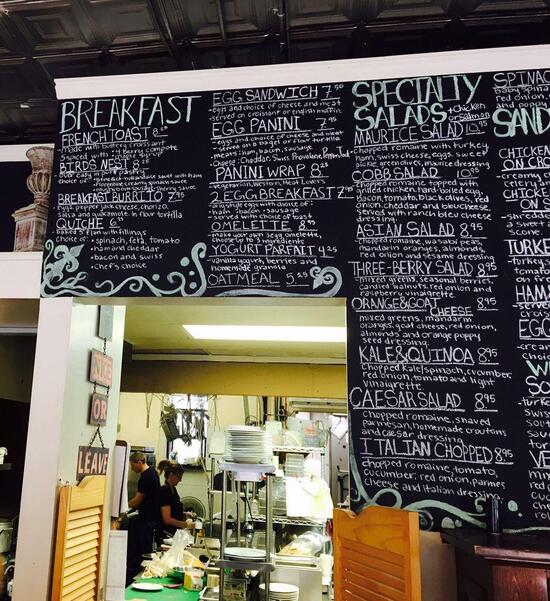 BREAKFAST
FRENCH TOAST 8.50
- made with buttery croissant
BIRDS NEST 8
BREAKFAST BURRITO 7.95
eggs, pepper jack cheese, chorizo,
salsa and guacamole in flour tortilla
QUICHE 6.95
baked 9in. with fillings
choice of:
• spinach, feta, tomato
• ham and cheddar
• bacon and swiss
• chef's choice
EGG SANDWICH 7.50
- eggs and choice of cheese and meat
- served on croissant or english muffin
EGG PANINI 7.95
- eggs and choice of cheese and meat
served on bagel or flour tortilla
- meats: ham, bacon, sausage
- cheese: Cheddar, Swiss, Provolone,
PANINI WRAP 8.50
- vegetarian, Western, Meat Lover's
2 EGG BREAKFAST 7.95
- any style eggs with choice of:
• ham • bacon • sausage
• served with choice of toast
OMELETTE 8.95
- make your own 3 egg omelette,
choose up to 5 ingredients
YOGURT PARFAIT 4.25
- vanilla yogurt, berries and
homemade granola
OATMEAL 5.25
SPECIALTY
SALADS
+ Chicken
or Salmon
MAURICE SALAD 10.95
chopped romaine with turkey,
ham, swiss cheese, eggs, sweet
pickle, greenolives, maurice dressing
COBB SALAD 10.95
chopped romaine, topped with
grilled chicken, hard boiled egg,
bacon, tomato, black olives, red
onion, cheddar and bleucheese
served with ranch bleu cheese
dressing.
ASIAN SALAD 8.95
Chopped romaine, wasabi peas,
mandarin oranges, almonds,
red onion and sesame dressing
THREE-BERRY SALAD 8.95
mixed greens, seasonal berries,
candied walnuts, red onion and
raspberry vinaigrette
ORANGE & GOAT CHEESE 8.95
mixed greens, mandarin
oranges, goat cheese, red onion,
almonds and orange poppy
seed dressing.
KALE & QUINOA 8.95
Chopped kale, spinach, cucumber,
red onion, tomato and light
vinaigrette
CAESAR SALAD 8.95
Chopped romaine, shaved
parmesan, homemade croutons
and caesar dressing.
ITALIAN CHOPPED 8.95
chopped romaine, tomato,
cucumber, red onion, parmesan
cheese and Italian dressing.
SPINAC
baby spin
red onion,
and poppy
SAND
CHICKEN
ON CRO
- creamy
celery
CHICKE
ON S
- shredded
TURKE
HAM
EGG
NICE
OR
LEAVE